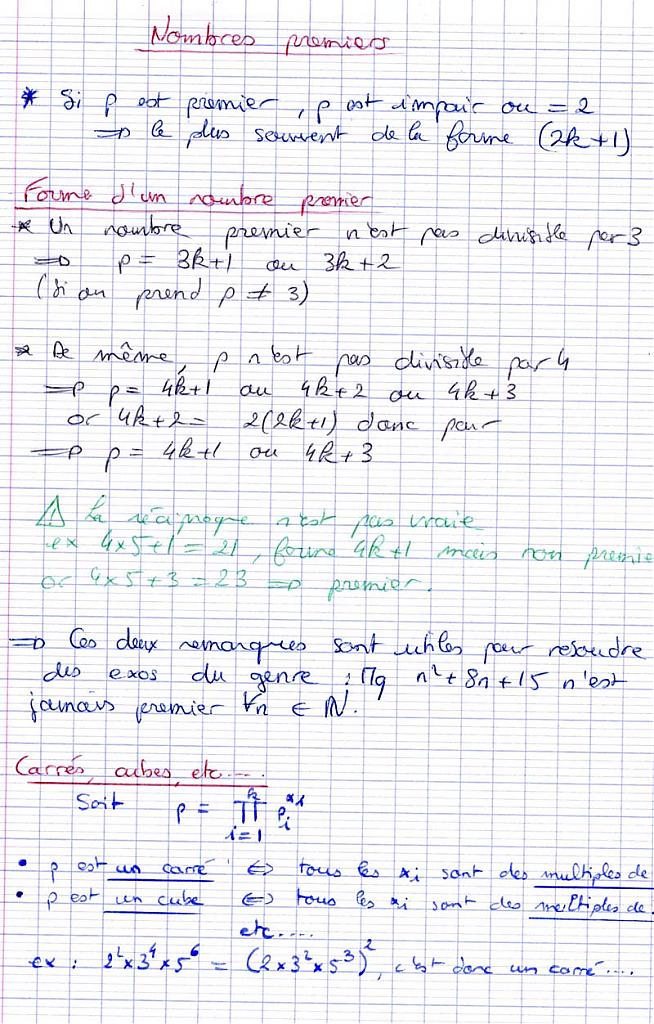 Nombres premiers
* Si p est premier, p est impair ou = 2
⇒ le plus souvent de la forme (2k+1)
Forme d'un nombre premier
* Un nombre premier n'est pas divisible par 3
⇒ p = 3k+1 ou 3k+2
(Si on prend p ≠ 3)
* De même, p n'est pas divisible par 4
⇒ p = 4k+1 ou 4k+2 ou 4k+3
or 4k+2 = 2(2k+1) donc pair
⇒ p = 4k+1 ou 4k+3
⚠ La réciproque n'est pas vraie
ex 4×5+1 = 21, forme 4k+1 mais non premie
or 4×5+3 = 23 ⇒ premier.
⇒ Ces deux remarques sont utiles pour resoudre
des exos du genre : Mq n²+8n+15 n'est
jamais premier ∀n ∈ ℕ.
Carrés, cubes, etc....
Soit p = ∏_{i=1}^{k} p_i^{αi}
• p est un carré ⇔ tous les αi sont des multiples de
• p est un cube ⇔ tous les αi sont des multiples de
etc....
ex : 2²×3⁴×5⁶ = (2×3²×5³)², c'est donc un carré....